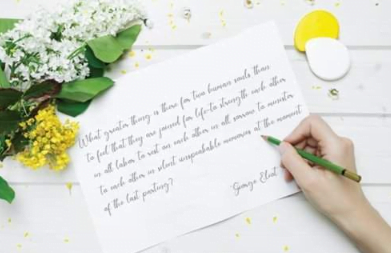 What greater thing is there for two human souls than
to feel that they are joined for life-to strength each other
in all labor to rest on each other in all sorrow to minister
to each other in silent unspeakable memories at the moment
of the last parting?
George Eliot